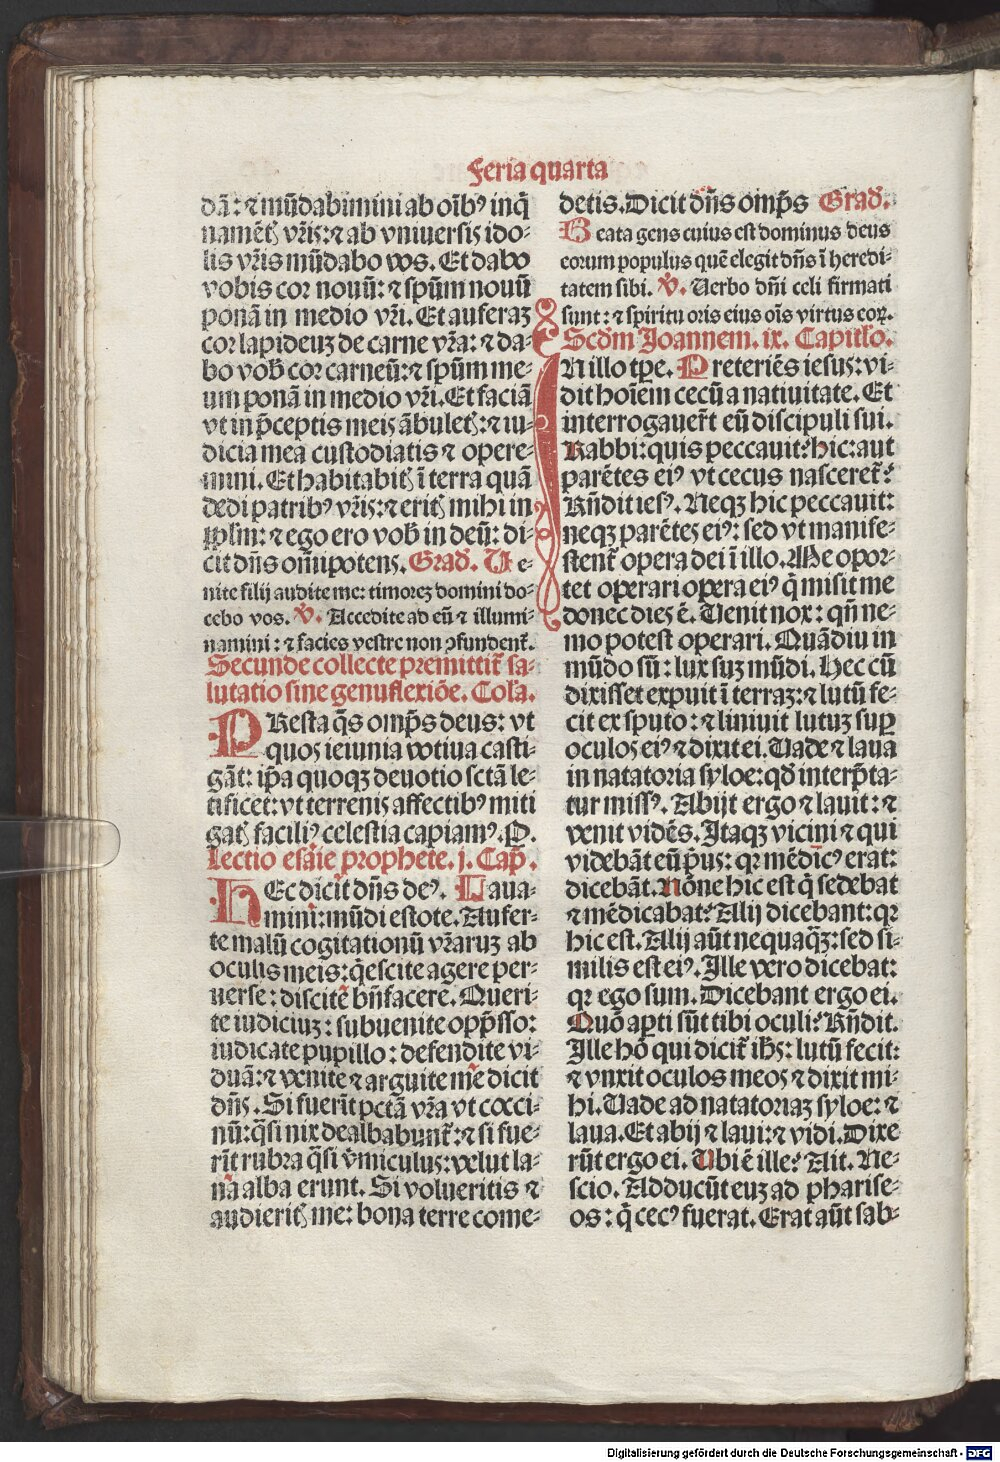 Feria quarta
dā: ⁊ mūdabimini ab oībꝰ inq̄
namētꝭ vr̄is: ⁊ ab vniuersis ido-
lis vr̄is mūdabo vos. Et dabo
vobis cor nouū: ⁊ spūm nouū
ponā in medio vr̄i. Et auferaꝫ
cor lapideuꝫ de carne vr̄a: ⁊ da-
bo vob̄ cor carneū: ⁊ spūm me-
um ponā in medio vr̄i. Et faciā
vt in p̄ceptis meis ābuletꝭ: ⁊ iu-
dicia mea custodiatis ⁊ opere-
mini. Et habitabitꝭ ī terra quā
dedi patribꝰ vr̄is: ⁊ eritꝭ mihi in
pplm: ⁊ ego ero vob̄ in deū: di-
cit dn̄s om̄ipotens. Grad̄. Ve-
nite filij audite me: timoreꝫ domini do-
cebo vos. V̄. Accedite ad eū ⁊ illumi-
namini: ⁊ facies vestre non ꝯfundent̄.
Secunde collecte premittit̄ sa-
lutatio sine genuflexiōe. Col̄a.
PResta q̄s omp̄s deus: vt
quos ieiunia votiua casti-
gāt: ip̄a quoqꝫ deuotio sctā le-
tificet: vt terrenis affectibꝰ miti
gatꝭ faciliꝰ celestia capiamꝰ. P.
Lectio esaie prophete. j. Cap̄.
HEc dicit dn̄s deꝰ. Laua-
mini: mūdi estote. Aufer-
te malū cogitationū vr̄aruꝫ ab
oculis meis: q̄escite agere per-
uerse: discite bn̄facere. Queri-
te iudiciuꝫ: subuenite opp̄sso:
iudicate pupillo: defendite vi-
duā: ⁊ venite ⁊ arguite me dicit
dn̄s. Si fuerīt pctā vr̄a vt cocci-
nū: q̄si nix dealbabunt̄: ⁊ si fue-
rīt rubra q̄si v̄miculus: velut la-
na alba erunt. Si volueritis ⁊
audieritꝭ me: bona terre come-
detis. Dicit dn̄s omp̄s Grad̄.
Beata gens cuius est dominus deus
eorum populus quē elegit dn̄s ī heredi-
tatem sibi. V̄. Verbo dn̄i celi firmati
sunt: ⁊ spiritu oris eius oīs virtus eoꝝ.
Scdm Joannem. ix. Capitl̄o.
IN illo tp̄e. Preteriēs iesus: vi-
dit hoīem cecū a natiuitate. Et
interrogauer̄t eū discipuli sui.
Rabbi: quis peccauit? hic: aut
parētes eiꝰ vt cecus nasceret̄?
Rn̄dit iesꝰ. Neqꝫ hic peccauit:
neqꝫ parētes eiꝰ: sed vt manife-
stent̄ opera dei ī illo. Me opor-
tet operari opera eiꝰ q̄ misit me
donec dies ē. Venit nox: qn̄ ne-
mo potest operari. Quādiu in
mūdo sū: lux suꝫ mūdi. Hec cū
dixisset expuit ī terraꝫ: ⁊ lutū fe-
cit ex sputo: ⁊ liniuit lutuꝫ suꝑ
oculos eiꝰ ⁊ dixit ei. Vade ⁊ laua
in natatoria syloe: qd̄ interp̄ta-
tur missꝰ. Abijt ergo ⁊ lauit: ⁊
venit vidēs. Itaqꝫ vicini ⁊ qui
videbāt eū p̄us: qꝛ mēdicꝰ erat:
dicebāt. Nōne hic est q̄ sedebat
⁊ mēdicabat? Alij dicebant: qꝛ
hic est. Alij aūt nequaq̄ꝫ: sed si-
milis est eiꝰ. Ille vero dicebat:
qꝛ ego sum. Dicebant ergo ei.
Quō aꝑti sūt tibi oculi? Rn̄dit.
Ille hō qui dicit̄ ih̄s: lutū fecit:
⁊ vnxit oculos meos ⁊ dixit mi-
hi. Vade ad natatoriaꝫ syloe: ⁊
laua. Et abij ⁊ laui: ⁊ vidi. Dixe
rūt ergo ei. Vbi ē ille? Ait. Ne-
scio. Adducūt euꝫ ad pharise-
os: q̄ cecꝰ fuerat. Erat aūt sab-
Digitalisierung gefördert durch die Deutsche Forschungsgemeinschaft - DFG